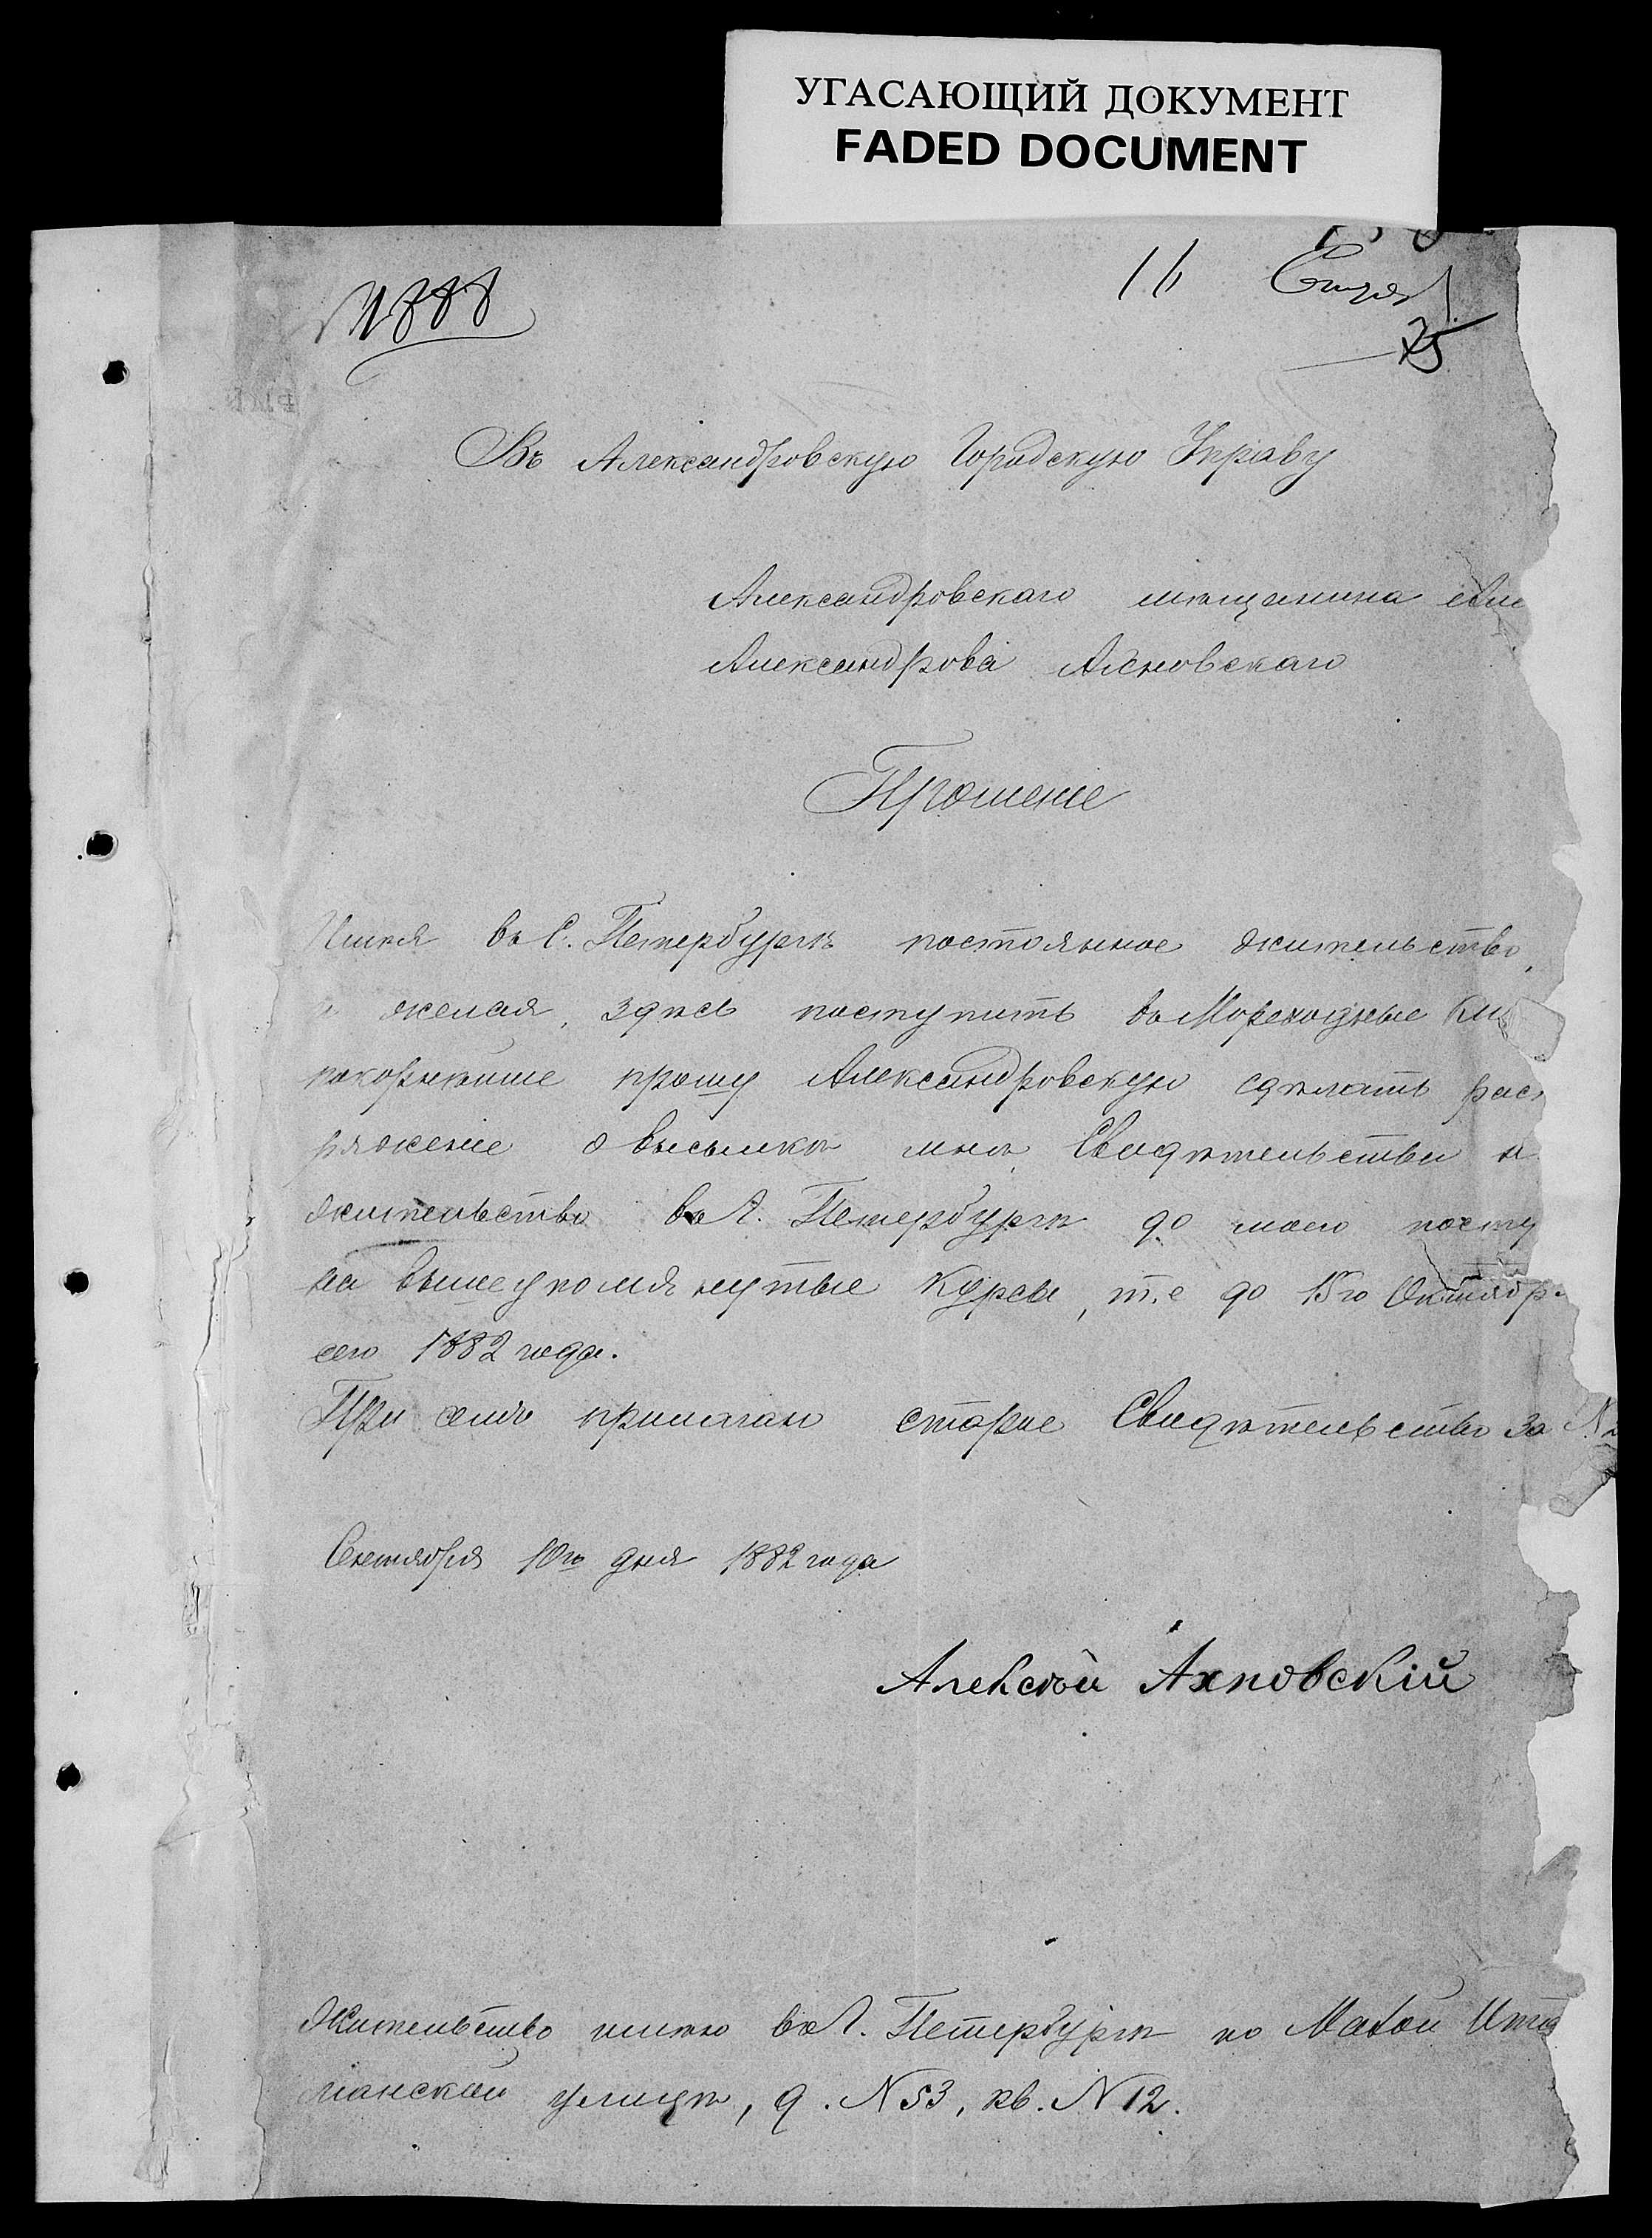 УГАСАЮЩИЙ ДОКУМЕНТ
FADED DOCUMENT
16
75
Въ Александровскую Городскую Управу
Александровскаго мѣщанина Але
Александрова
Прошеніе
Имѣя въ С. Петербургѣ постоянное жительство,
и желая, здѣсь поступить въ Мореходные
покорнѣйше прошу Александровскую сдѣлать рас
ряженіе о высылкѣ мнѣ Свидѣтельства н
жительство въ С. Петербургѣ до моего посту
на вышеупомянутые Курсы, т.е до 15го Октябр
сего 1882 года.
При семъ прилагаю старое Свидѣтельство за N
Сентября 10го дня 1882 года
Алексѣй Ахновскій
Жительство имѣю въ С. Петербургѣ по Малой Ита
лианской улицѣ, д. N 53, кв. N 12.